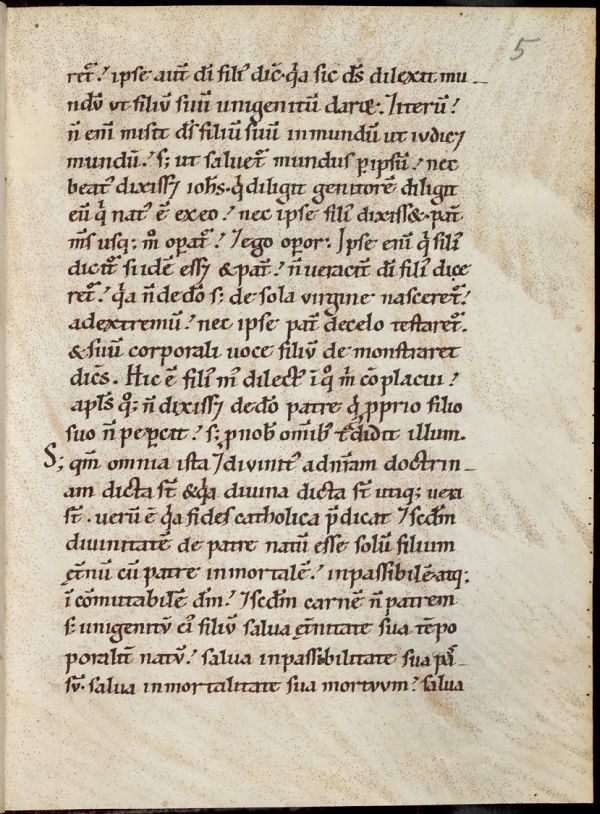 5
ret᷑. ipse aut̄ dī filı᷑ dic̄. qͥa sic dꝰ dilexit mu-
ndū ut filiū suū unigenitū daret. Iterū.
n̄ enī misit dſ̄ filiū suū in mundū ut iudicꝫ
mundū. sꝫ ut saluet᷑ mundus ꝑ ipsū. nec
beat᷑ dixissꝫ ioh̄s. qͥ diligit genitorē diligit
eū qͥ nat᷑ ē ex eo. nec ipse filı᷑ dixiss&. pat᷑
m̄s usqꝫ mͦ opat᷑. ⁊ ego opor. Ipse enī qͥ filı᷑
dicit᷑ si idē essꝫ & pat᷑. n̄ veracit᷑ dī filı᷑ dice
ret᷑. qͥa n̄ de dō sꝫ de sola virgine nasceret᷑.
ad extremū. nec ipse pat᷑ de celo testaret᷑.
& suū corporali uoce filiū demonstraret
dicēs. Hic ē filı᷑ m᷑ dilect᷑ ī qͦ m̄ cōplacui.
apl̄s qͦꝫ n̄ dixissꝫ de dō patre qͥ ꝓprio filio
suo n̄ pepercit. sꝫ ꝓ nob᷑ om̄ib᷑ t᷑didit illum.
Sꝫ qm̄ omnia ista ⁊ diuinit᷑ ad nr̄am doctrin-
am dicta st̄ & qͥa diuina dicta st̄ utiqꝫ vera
st̄. verū ē qͥa fides catholica p̄dicat ⁊ scd̄m
diuinitatē de patre natū esse solū filium
et᷑nū cū patre inmortalē. inpassibilē atqꝫ
īcōmutabilē dm̄. ⁊ scd̄m carnē n̄ patrem
sꝫ unigenitū eı᷑ filiū salua et᷑nitate sua tēpo
poralit᷑ natū. salua inpassibilitate sua pas-
sū. salua inmortalitate sua mortuum. salua